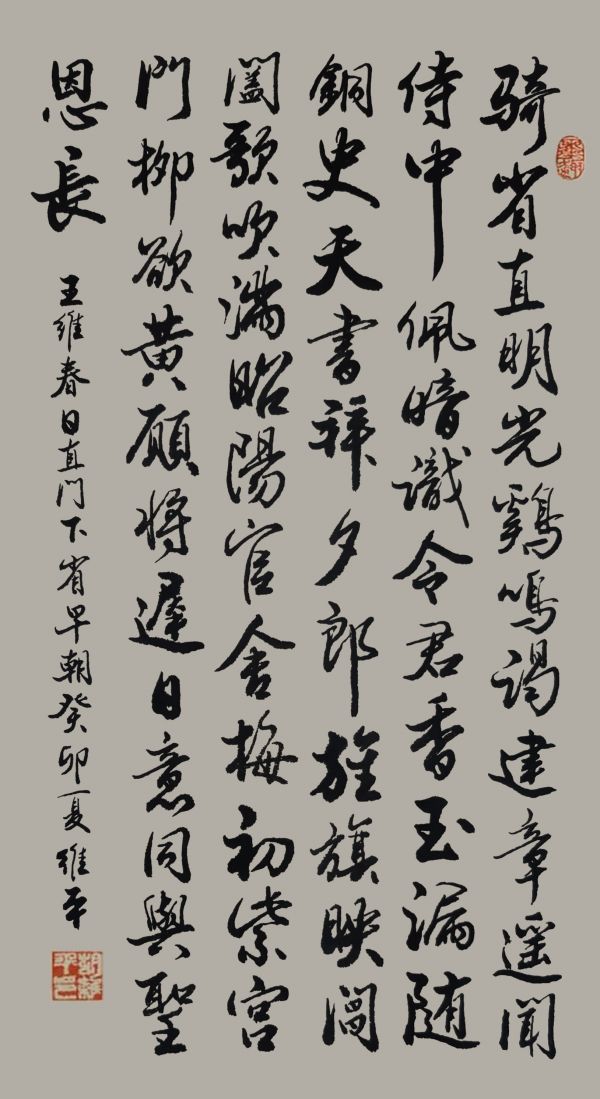 骑省直明光鷄鳴謁建章遥聞
侍中佩暗識令君香玉漏随
銅史天書拜夕郎旌旗映閶
闔歌吹滿昭陽官舍梅初紫宮
門柳欲黄願將遲日意同與聖
恩長
王維春日直門下省早朝癸卯夏維平